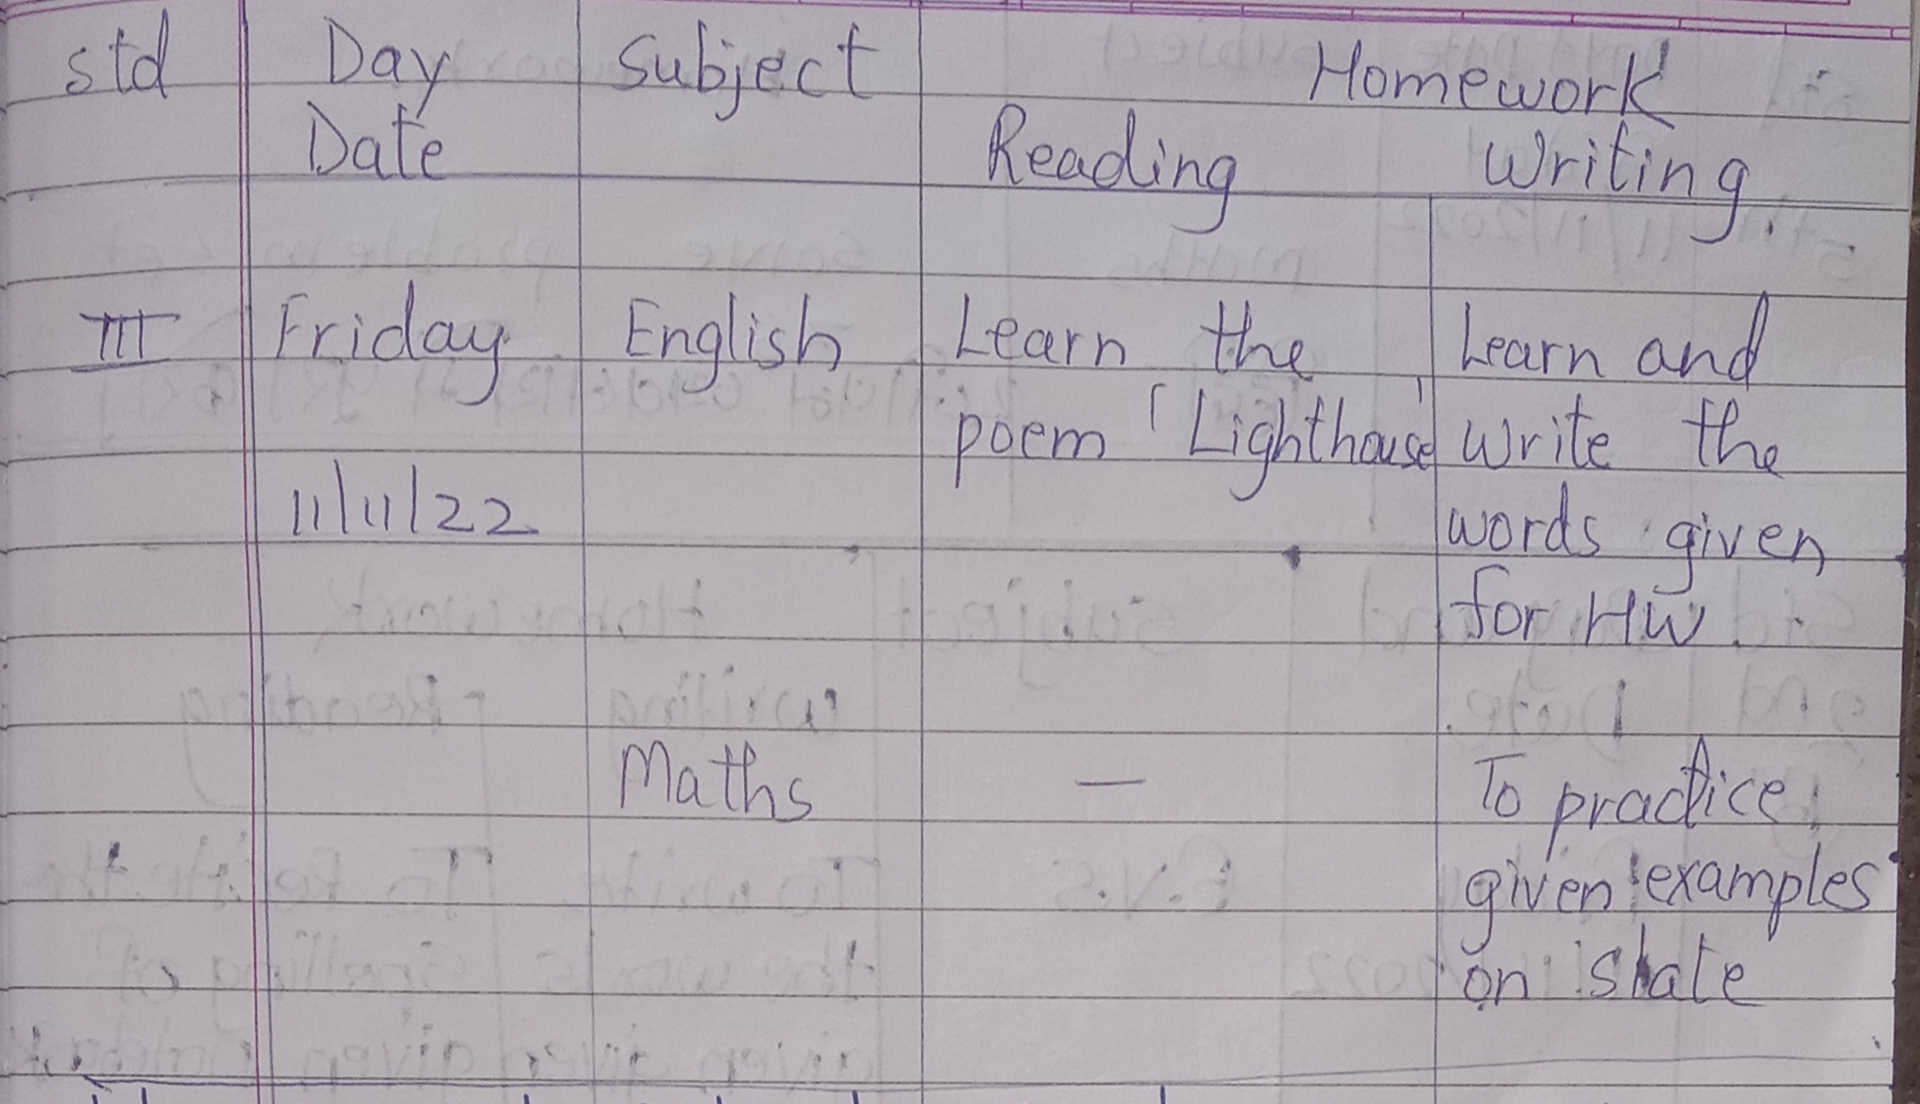 std Day Subject Homework
Date Reading Writing
III Friday English Learn the Learn and
poem 'Lighthouse' write the
11/11/22 words given
for HW
Maths — To practice
given examples
on slate